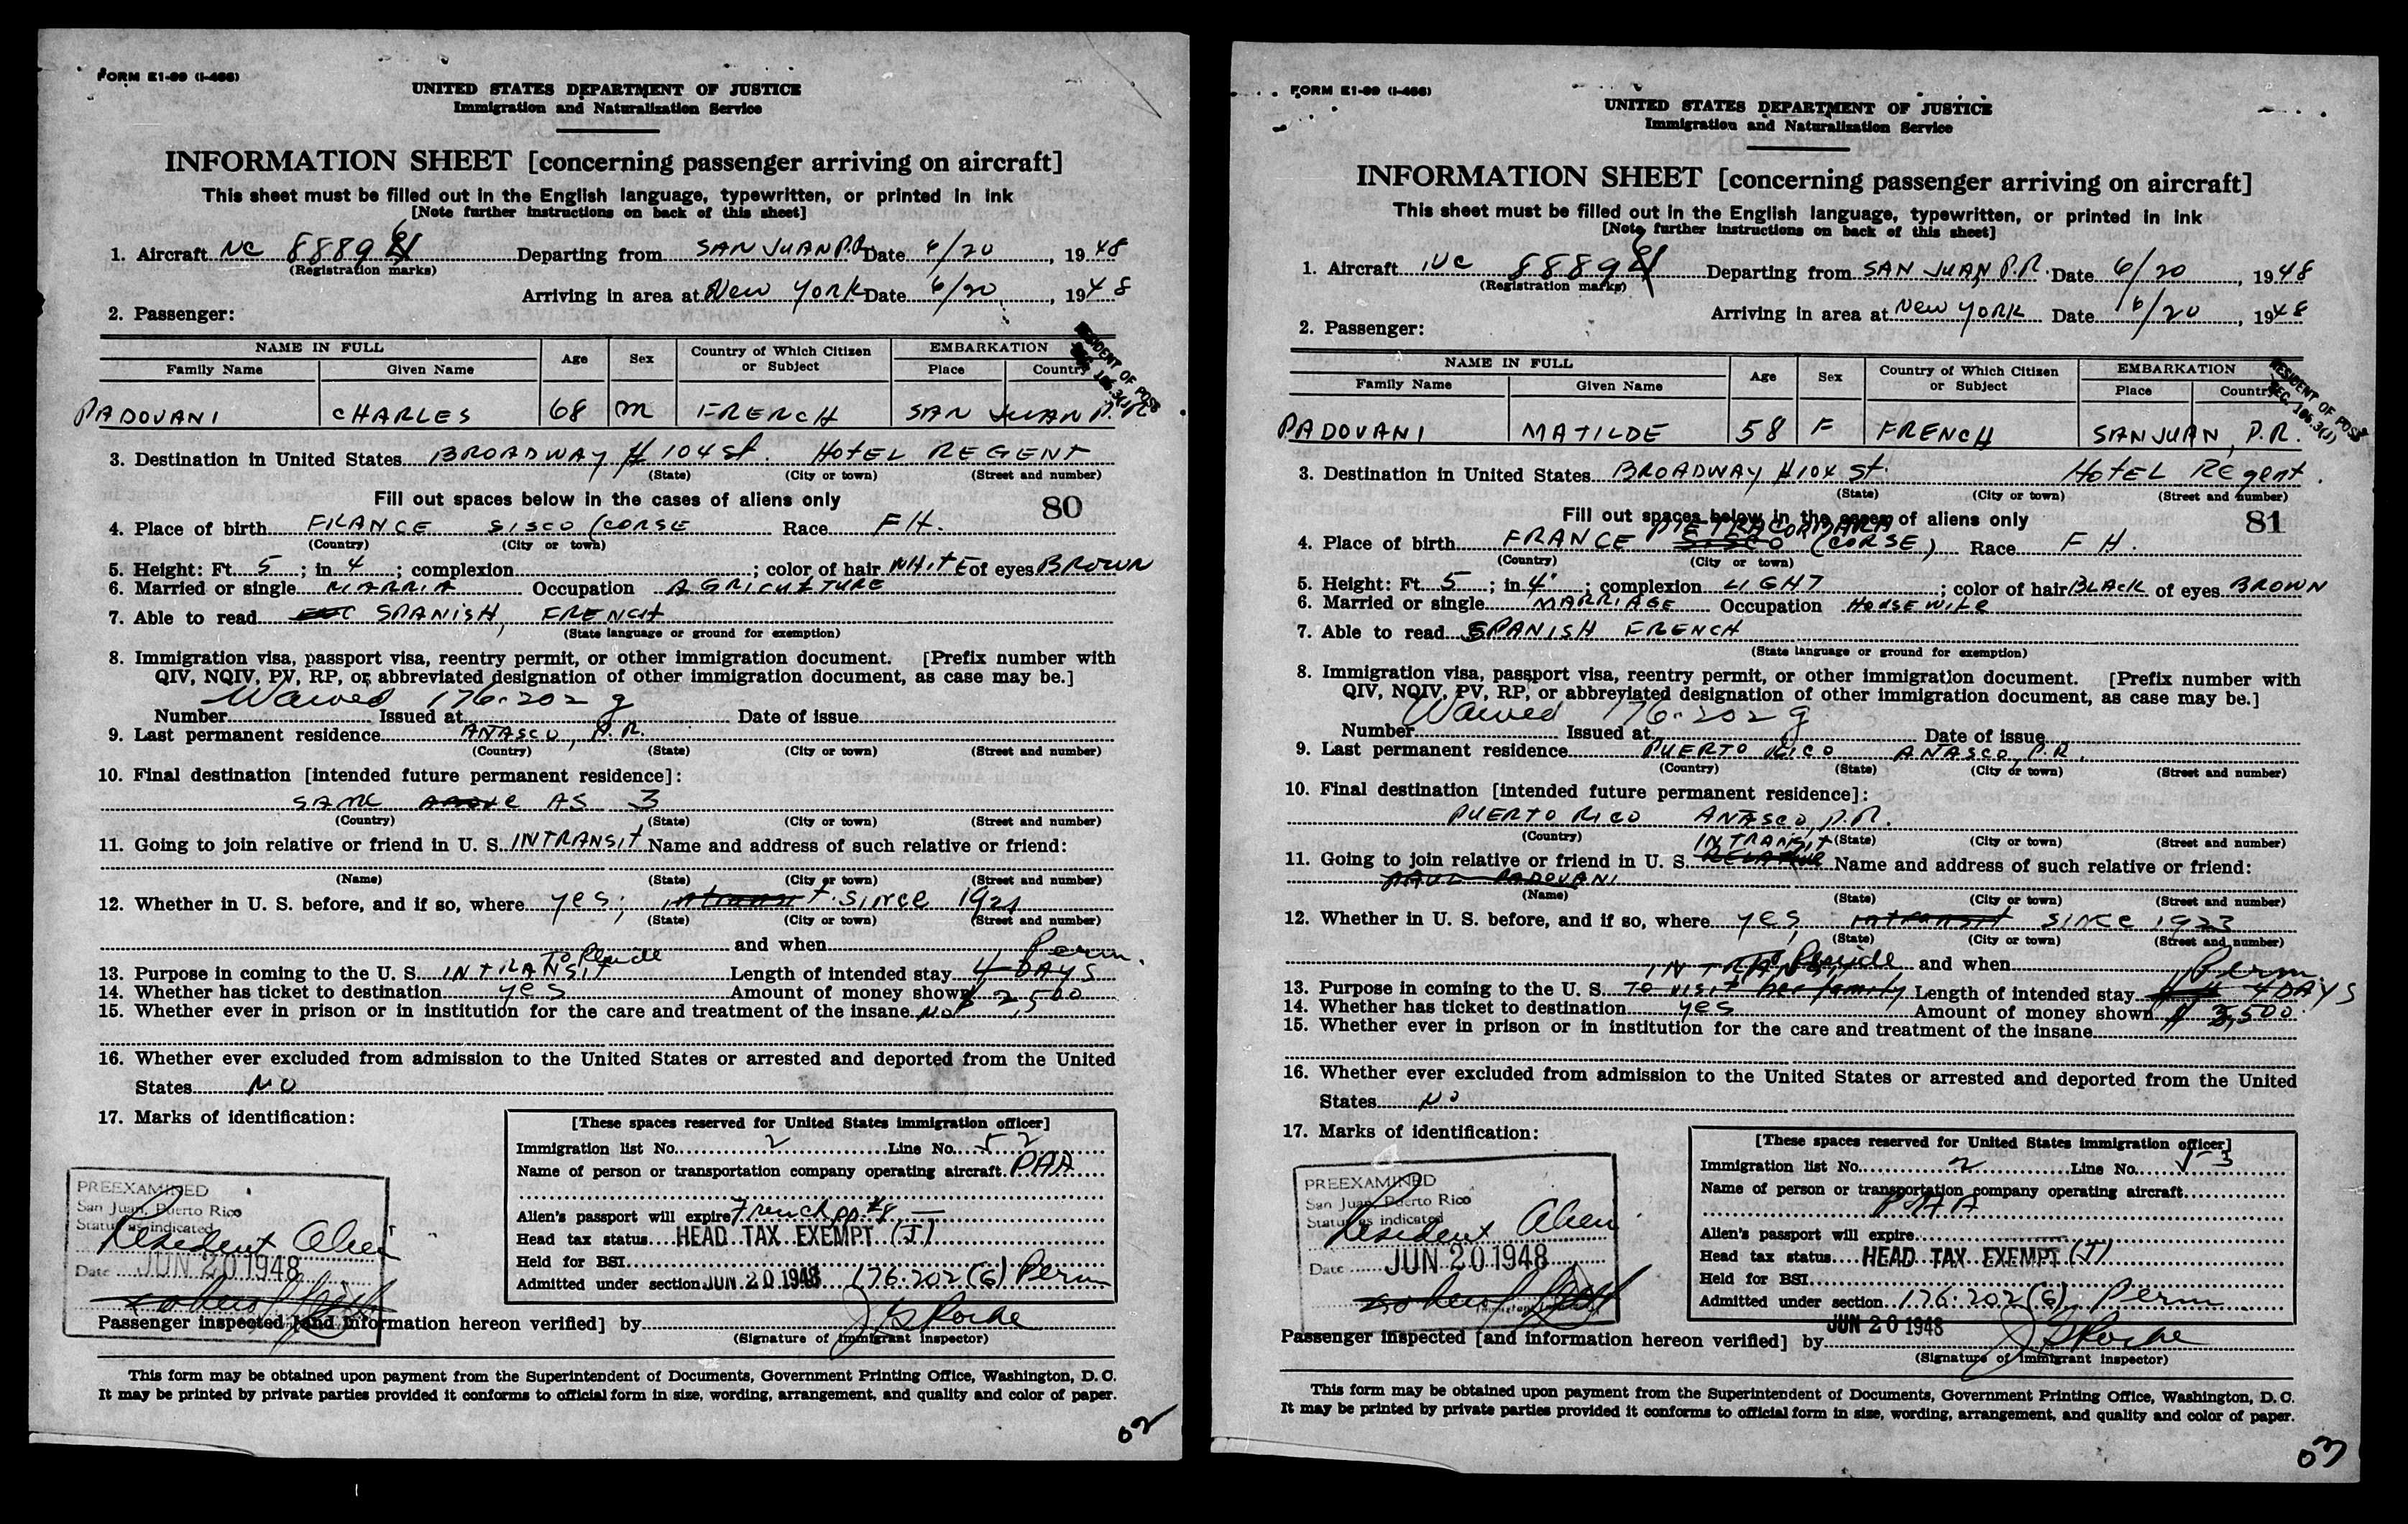 FORM E1-99 (I-466)
UNITED STATES DEPARTMENT OF JUSTICE
Immigration and Naturalization Service
INFORMATION SHEET [concerning passenger arriving on aircraft]
This sheet must be filled out in the English language, typewritten, or printed in ink
[Note further instructions on back of this sheet]
1. Aircraft NC 8889 Departing from SAN JUAN P.R. Date 6/20, 1948
(Registration marks)
Arriving in area at New York Date 6/20, 1948
2. Passenger:
NAME IN FULL Age Sex Country of Which Citizen or Subject EMBARKATION
Family Name Given Name Place Country
RESIDENT OF POSS
SEC. 106.3(J)
PADOVANI CHARLES 68 M FRENCH SAN JUAN P.R.
3. Destination in United States BROADWAY # 104 St. HOTEL REGENT
(State) (City or town) (Street and number)
Fill out spaces below in the cases of aliens only 80
4. Place of birth FRANCE SISCO (CORSE Race FH.
(Country) (City or town)
5. Height: Ft. 5; in. 4; complexion; color of hair WHITE of eyes BROWN
6. Married or single MARRIA Occupation AGRICULTURE
7. Able to read SPANISH, FRENCH
(State language or ground for exemption)
8. Immigration visa, passport visa, reentry permit, or other immigration document. [Prefix number with
QIV, NQIV, PV, RP, or abbreviated designation of other immigration document, as case may be.]
Waived 176.202 g
Number Issued at Date of issue
9. Last permanent residence ANASCO, P.R.
(Country) (State) (City or town) (Street and number)
10. Final destination [intended future permanent residence]:
SAME above AS 3
(Country) (State) (City or town) (Street and number)
11. Going to join relative or friend in U. S. INTRANSIT Name and address of such relative or friend:
(Name) (State) (City or town) (Street and number)
12. Whether in U. S. before, and if so, where yes; intransit since 1921
(State) (City or town) (Street and number)
and when
To Reside Perm.
13. Purpose in coming to the U. S. INTRANSIT Length of intended stay 4 DAYS
14. Whether has ticket to destination yes Amount of money shown $ 2,500
15. Whether ever in prison or in institution for the care and treatment of the insane No
16. Whether ever excluded from admission to the United States or arrested and deported from the United
States NO
17. Marks of identification:
[These spaces reserved for United States immigration officer]
Immigration list No. 2 Line No. 52
Name of person or transportation company operating aircraft PAA
Alien's passport will expire French pp. #8
Head tax status HEAD TAX EXEMPT (J)
Held for BSI
Admitted under section JUN 20 1948 176.202(G) Perm
PREEXAMINED
San Juan, Puerto Rico
Status as indicated
Resident Alien
Date JUN 20 1948
Passenger inspected [and information hereon verified] by
(Signature of immigrant inspector)
This form may be obtained upon payment from the Superintendent of Documents, Government Printing Office, Washington, D. C.
It may be printed by private parties provided it conforms to official form in size, wording, arrangement, and quality and color of paper.
02
FORM E1-99 (I-466)
UNITED STATES DEPARTMENT OF JUSTICE
Immigration and Naturalization Service
INFORMATION SHEET [concerning passenger arriving on aircraft]
This sheet must be filled out in the English language, typewritten, or printed in ink
[Note further instructions on back of this sheet]
1. Aircraft NC 8889 Departing from SAN JUAN, P.R. Date 6/20, 1948
(Registration marks)
Arriving in area at New YORK Date 6/20, 1948
2. Passenger:
NAME IN FULL Age Sex Country of Which Citizen or Subject EMBARKATION
Family Name Given Name Place Country
RESIDENT OF POSS
SEC. 106.3(J)
PADOVANI MATILDE 58 F FRENCH SAN JUAN, P.R.
3. Destination in United States BROADWAY #104 St. HOTEL Regent
(State) (City or town) (Street and number)
Fill out spaces below in the cases of aliens only 81
PIETRACORBARA
4. Place of birth FRANCE SISCO (CORSE) Race FH.
(Country) (City or town)
5. Height: Ft. 5; in. 4"; complexion LIGHT; color of hair BLACK of eyes BROWN
6. Married or single MARRIAGE Occupation HOUSEWIFE
7. Able to read SPANISH FRENCH
(State language or ground for exemption)
8. Immigration visa, passport visa, reentry permit, or other immigration document. [Prefix number with
QIV, NQIV, PV, RP, or abbreviated designation of other immigration document, as case may be.]
Waived 176.202 g
Number Issued at Date of issue
9. Last permanent residence PUERTO RICO ANASCO, P.R.
(Country) (State) (City or town) (Street and number)
10. Final destination [intended future permanent residence]:
PUERTO RICO ANASCO, P.R.
(Country) (State) (City or town) (Street and number)
INTRANSIT
11. Going to join relative or friend in U. S. RELATIVE Name and address of such relative or friend:
PAUL PADOVANI
(Name) (State) (City or town) (Street and number)
12. Whether in U. S. before, and if so, where yes, intransit SINCE 1923
(State) (City or town) (Street and number)
IN TRANSIT To Reside and when Perm.
13. Purpose in coming to the U. S. To visit her family Length of intended stay 4 DAYS
14. Whether has ticket to destination yes Amount of money shown $ 3,500
15. Whether ever in prison or in institution for the care and treatment of the insane
16. Whether ever excluded from admission to the United States or arrested and deported from the United
States NO
17. Marks of identification:
[These spaces reserved for United States immigration officer]
Immigration list No. 2 Line No. 53
Name of person or transportation company operating aircraft
PAA
Alien's passport will expire
Head tax status HEAD TAX EXEMPT (J)
Held for BSI
Admitted under section 176.202(G) Perm
JUN 20 1948
PREEXAMINED
San Juan, Puerto Rico
Status as indicated
Resident Alien
Date JUN 20 1948
Passenger inspected [and information hereon verified] by
(Signature of immigrant inspector)
This form may be obtained upon payment from the Superintendent of Documents, Government Printing Office, Washington, D. C.
It may be printed by private parties provided it conforms to official form in size, wording, arrangement, and quality and color of paper.
03